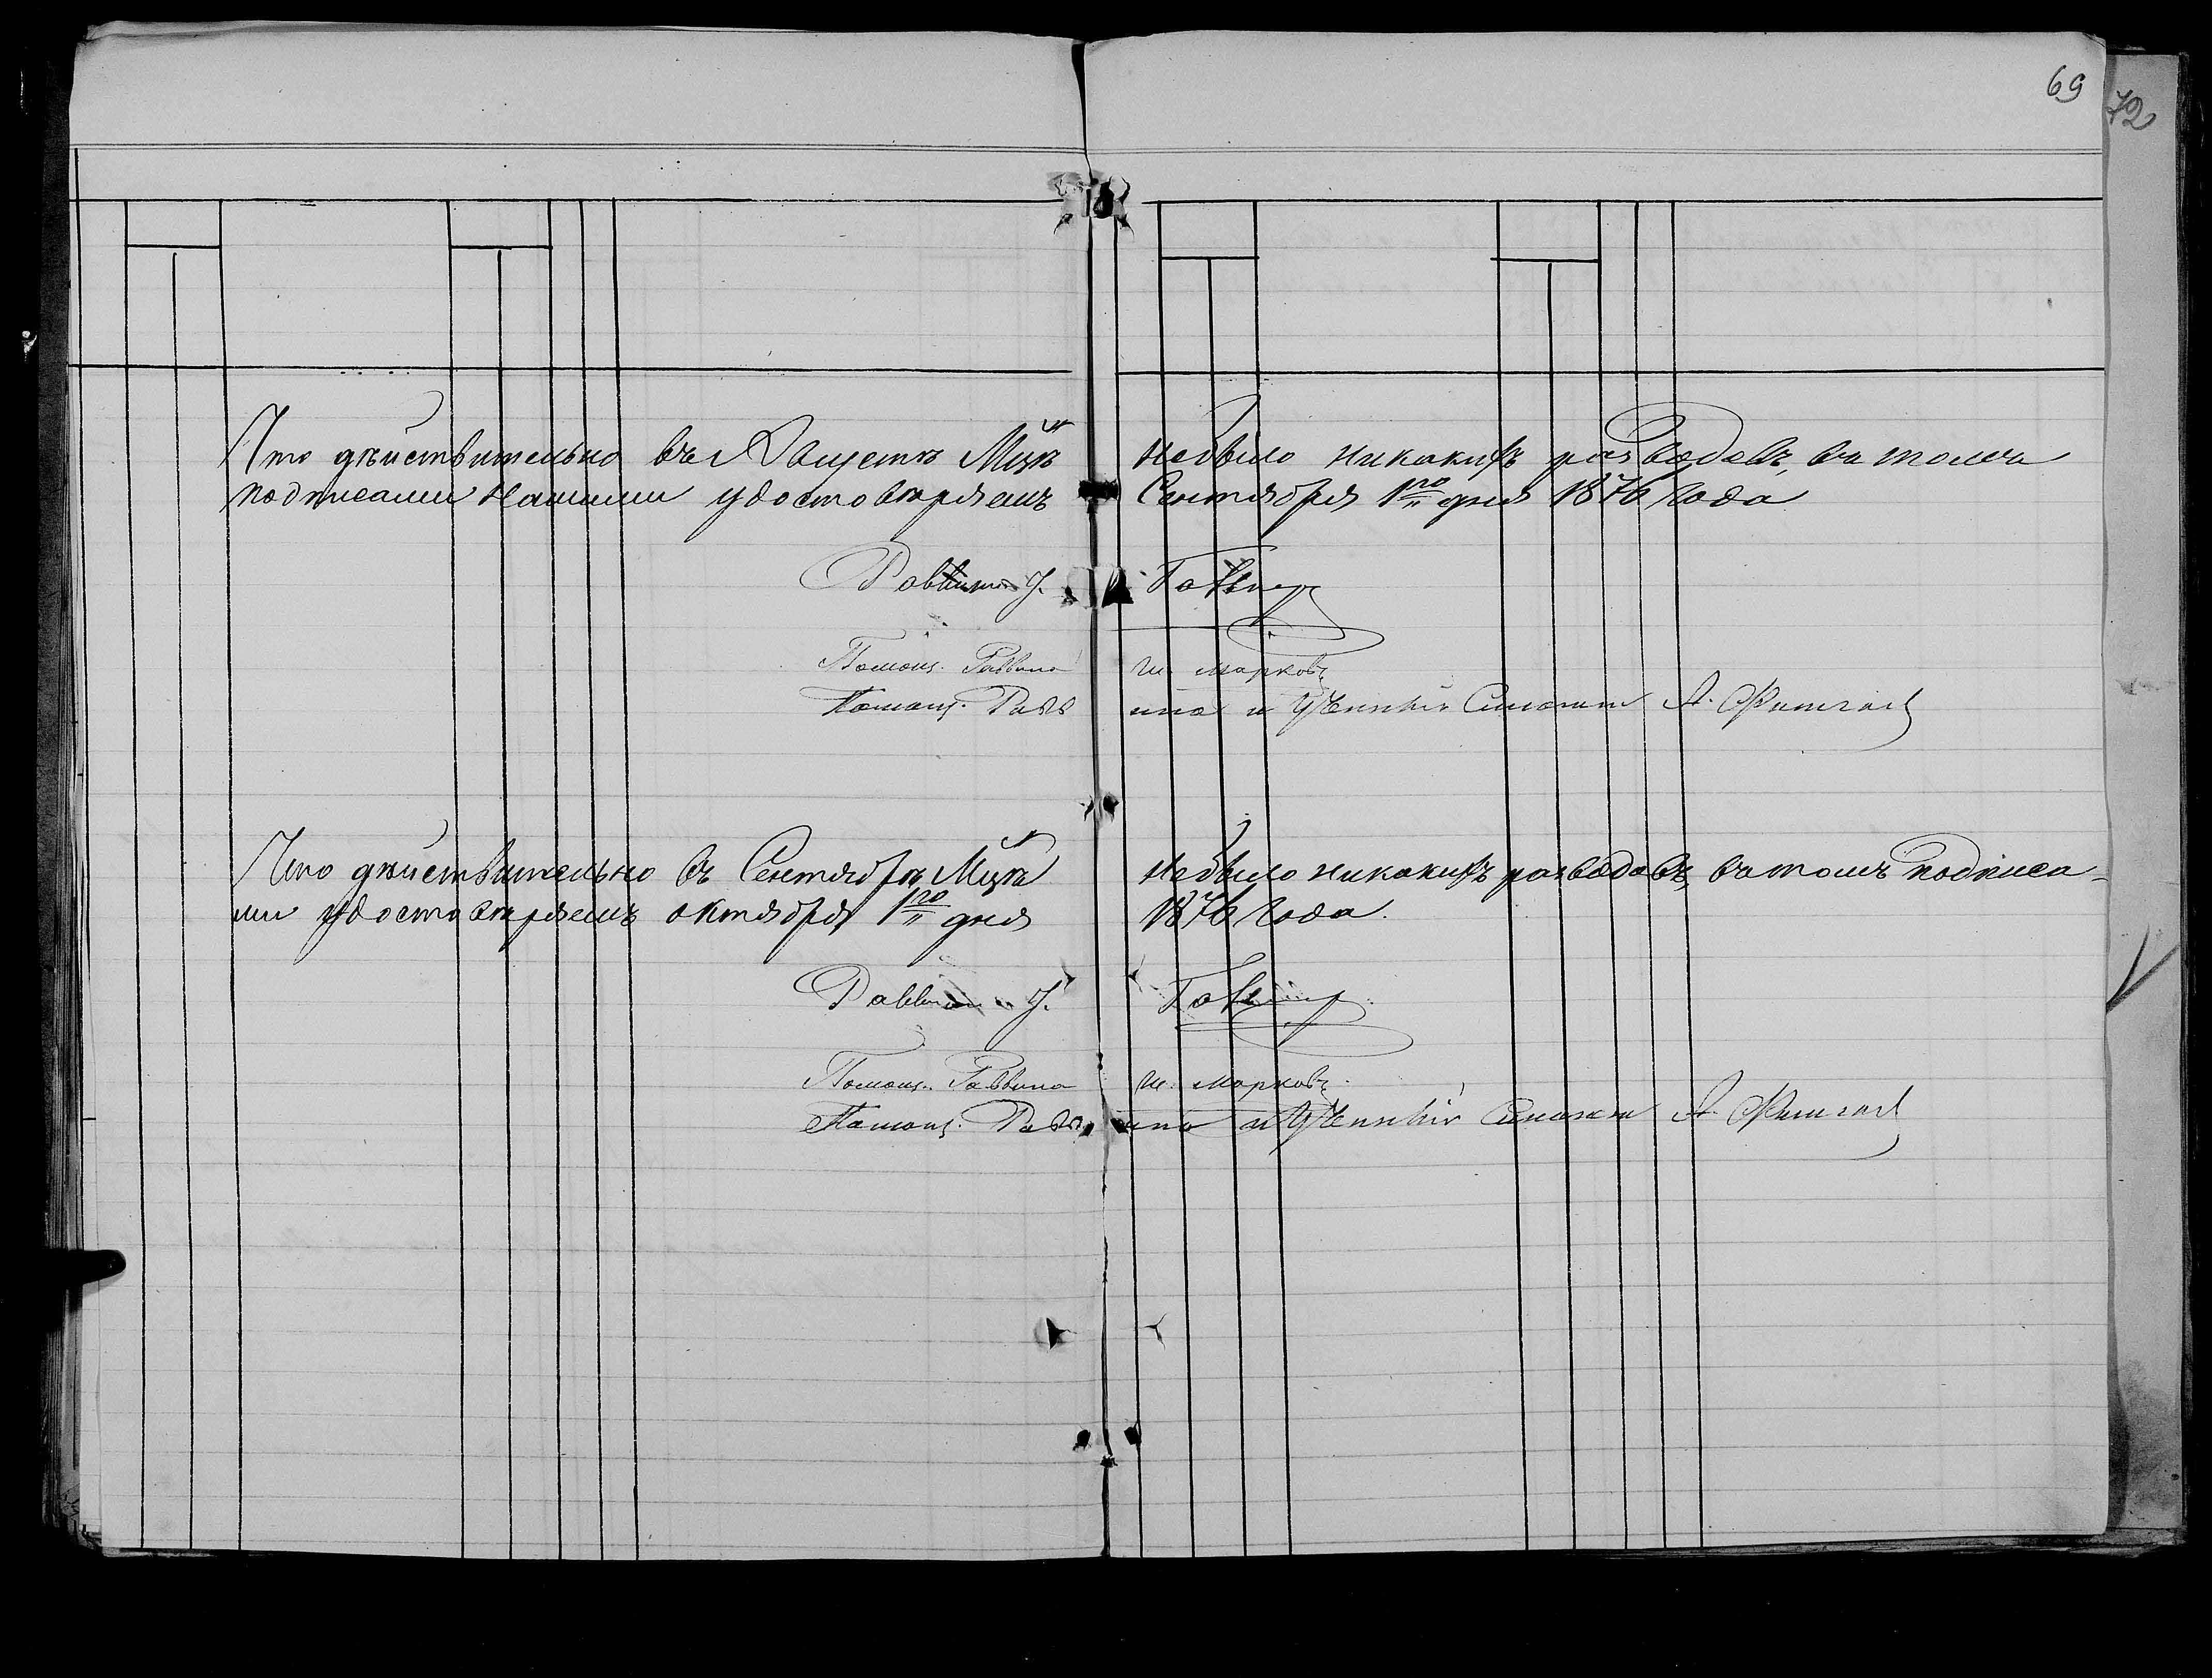 69
72
Что дѣйствительно въ Августѣ Мцѣ небыло никакихъ разводовъ, въ томъ
подписами нашими удостовѣряемъ Сентября 1го дня 1876 года
Раввинъ J.
Помощ. Раввина Ш. Марковъ
Помощ. Раввина и Ученый А.
Что дѣйствительно въ Сентябрѣ Мцѣ небыло никакихъ разводовъ, въ томъ подписа-
ми удостовѣряемъ октября 1го дня 1876 года.
Раввинъ J.
Помощ. Раввина Ш. Марковъ
Помощ. Раввина и Ученый А.